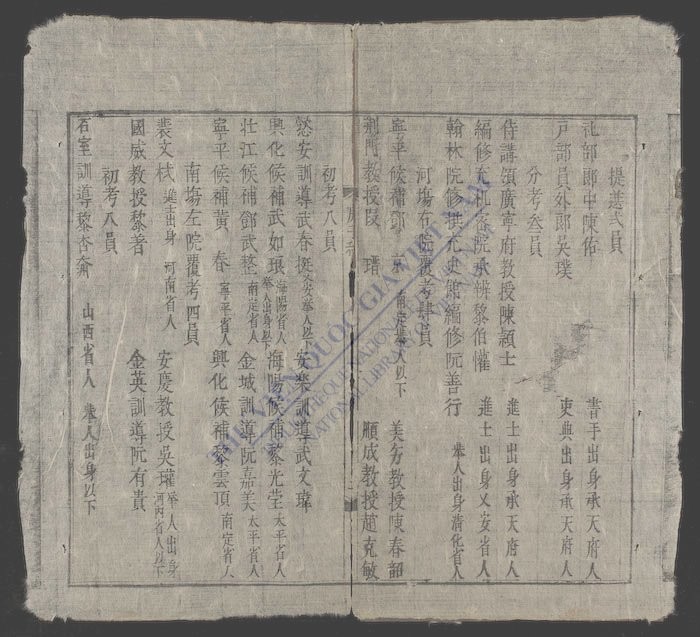 提選貳員
礼部郎中陳佑 書手出身承天府人
戸部員外郎吳璞 吏典出身承天府人
分考叁員
侍講領廣寧府教授陳穎士 進士出身承天府人
編修充机密院承辨黎伯懽 進士出身乂安省人
翰林院修撰充史館編修阮善行 舉人出身清化省人
河塲左院覆考肆員
寧平候補鄧 南定舉人以下 美芳教授陳春韶
荆門教授段 瑨 順成教授趙克敏
初考八員
慈安訓導武春挺 舉人以下 安樂訓導武文瑋
興化候補武如珢 海陽省人 舉人出身以下 海陽候補黎光堂 太平省人
壮江候補鄧武整 南定省人 金城訓導阮嘉美 太平省人
寧平候補黄春 寧平省人 興化候補黎雲頂 南定省人
南塲左院覆考四員
裴文棫 進士出身 河南省人 安慶教授吳瓘 舉人出身 河内省人以下
國威教授黎著 金英訓導阮有貴
初考八員
石室訓導黎杏 山西省人 舉人出身以下
THƯ VIỆN QUỐC GIA VIỆT NAM
BIBLIOTHEQUE NATIONALE DU VIETNAM
NATIONAL LIBRARY OF VIETNAM